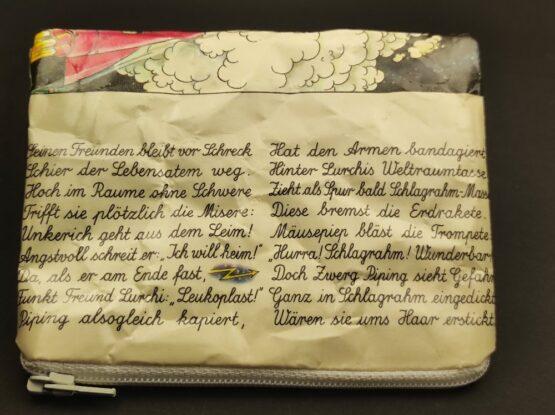 Seinen Freunden bleibt vor Schreck
Schier der Lebensatem weg.
Hoch im Raume ohne Schwere
Trifft sie plötzlich die Misere:
Unkerich geht aus dem Leim!
Angstvoll schreit er: „Ich will heim!"
Da, als er am Ende fast,
Funkt Freund Lurchi: „Leukoplast!"
Piping alsogleich kapiert,
Hat den Armen bandagiert,
Hinter Lurchis Weltraumtasse
Zieht als Spur bald Schlagrahm-Masse
Diese bremst die Erdrakete.
Mäusepiep bläst die Trompete:
"Hurra! Schlagrahm! Wunderbar
Doch Zwerg Piping sieht Gefahr
Ganz in Schlagrahm eingedickt
Wären sie ums Haar erstickt.